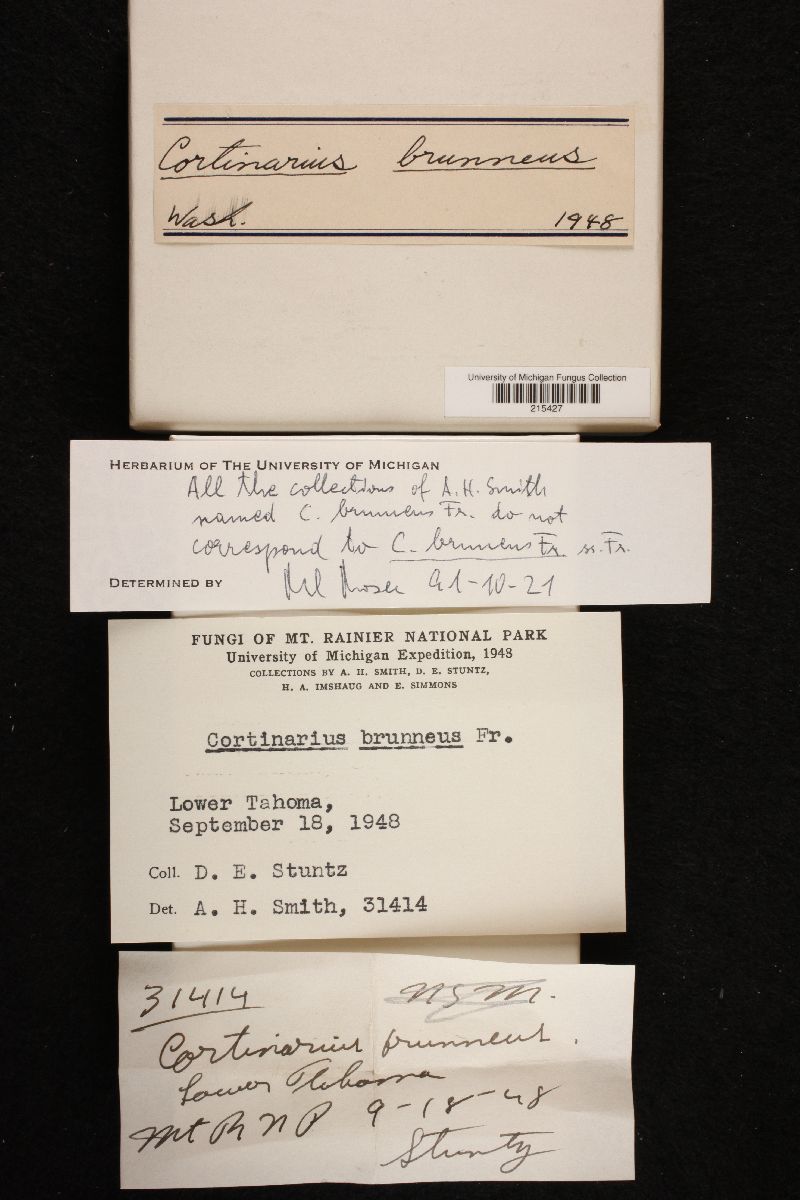 Cortinarius brunneus
Wash. 1948
University of Michigan Fungus Collection
215427
HERBARIUM OF THE UNIVERSITY OF MICHIGAN
All the collections of A.H. Smith
named C. brunneus Fr. do not
correspond to C. brunneus Fr. ss. Fr.
DETERMINED BY Moser 91-10-21
FUNGI OF MT. RAINIER NATIONAL PARK
University of Michigan Expedition, 1948
COLLECTIONS BY A. H. SMITH, D. E. STUNTZ,
H. A. IMSHAUG AND E. SIMMONS
Cortinarius brunneus Fr.
Lower Tahoma,
September 18, 1948
Coll. D. E. Stuntz
Det. A. H. Smith, 31414
31414
Cortinarius brunneus.
Lower Tahoma
Mt R N P 9-18-48
Stuntz